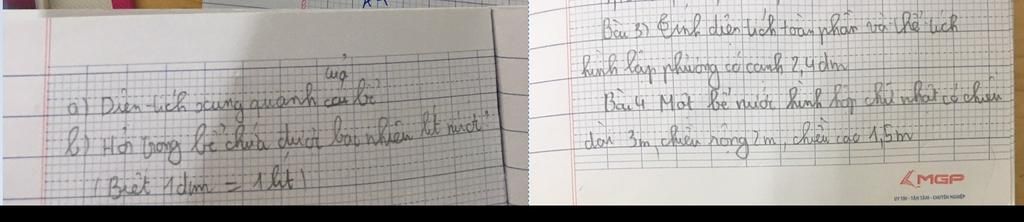 Bài 3) Tính diện tích toàn phần và thể tích
hình lập phương có cạnh 2,4dm
Bài 4 Một bể nước hình hộp chữ nhật có chiều
dài 3m, chiều rộng 2m, chiều cao 1,5m
MGP
UY TÍN - TẬN TÂM - CHUYÊN NGHIỆP
của
a) Diện tích xung quanh bể
b) Hỏi trong bể chứa được bao nhiêu lít nước?
(Biết 1dm = 1 lít)